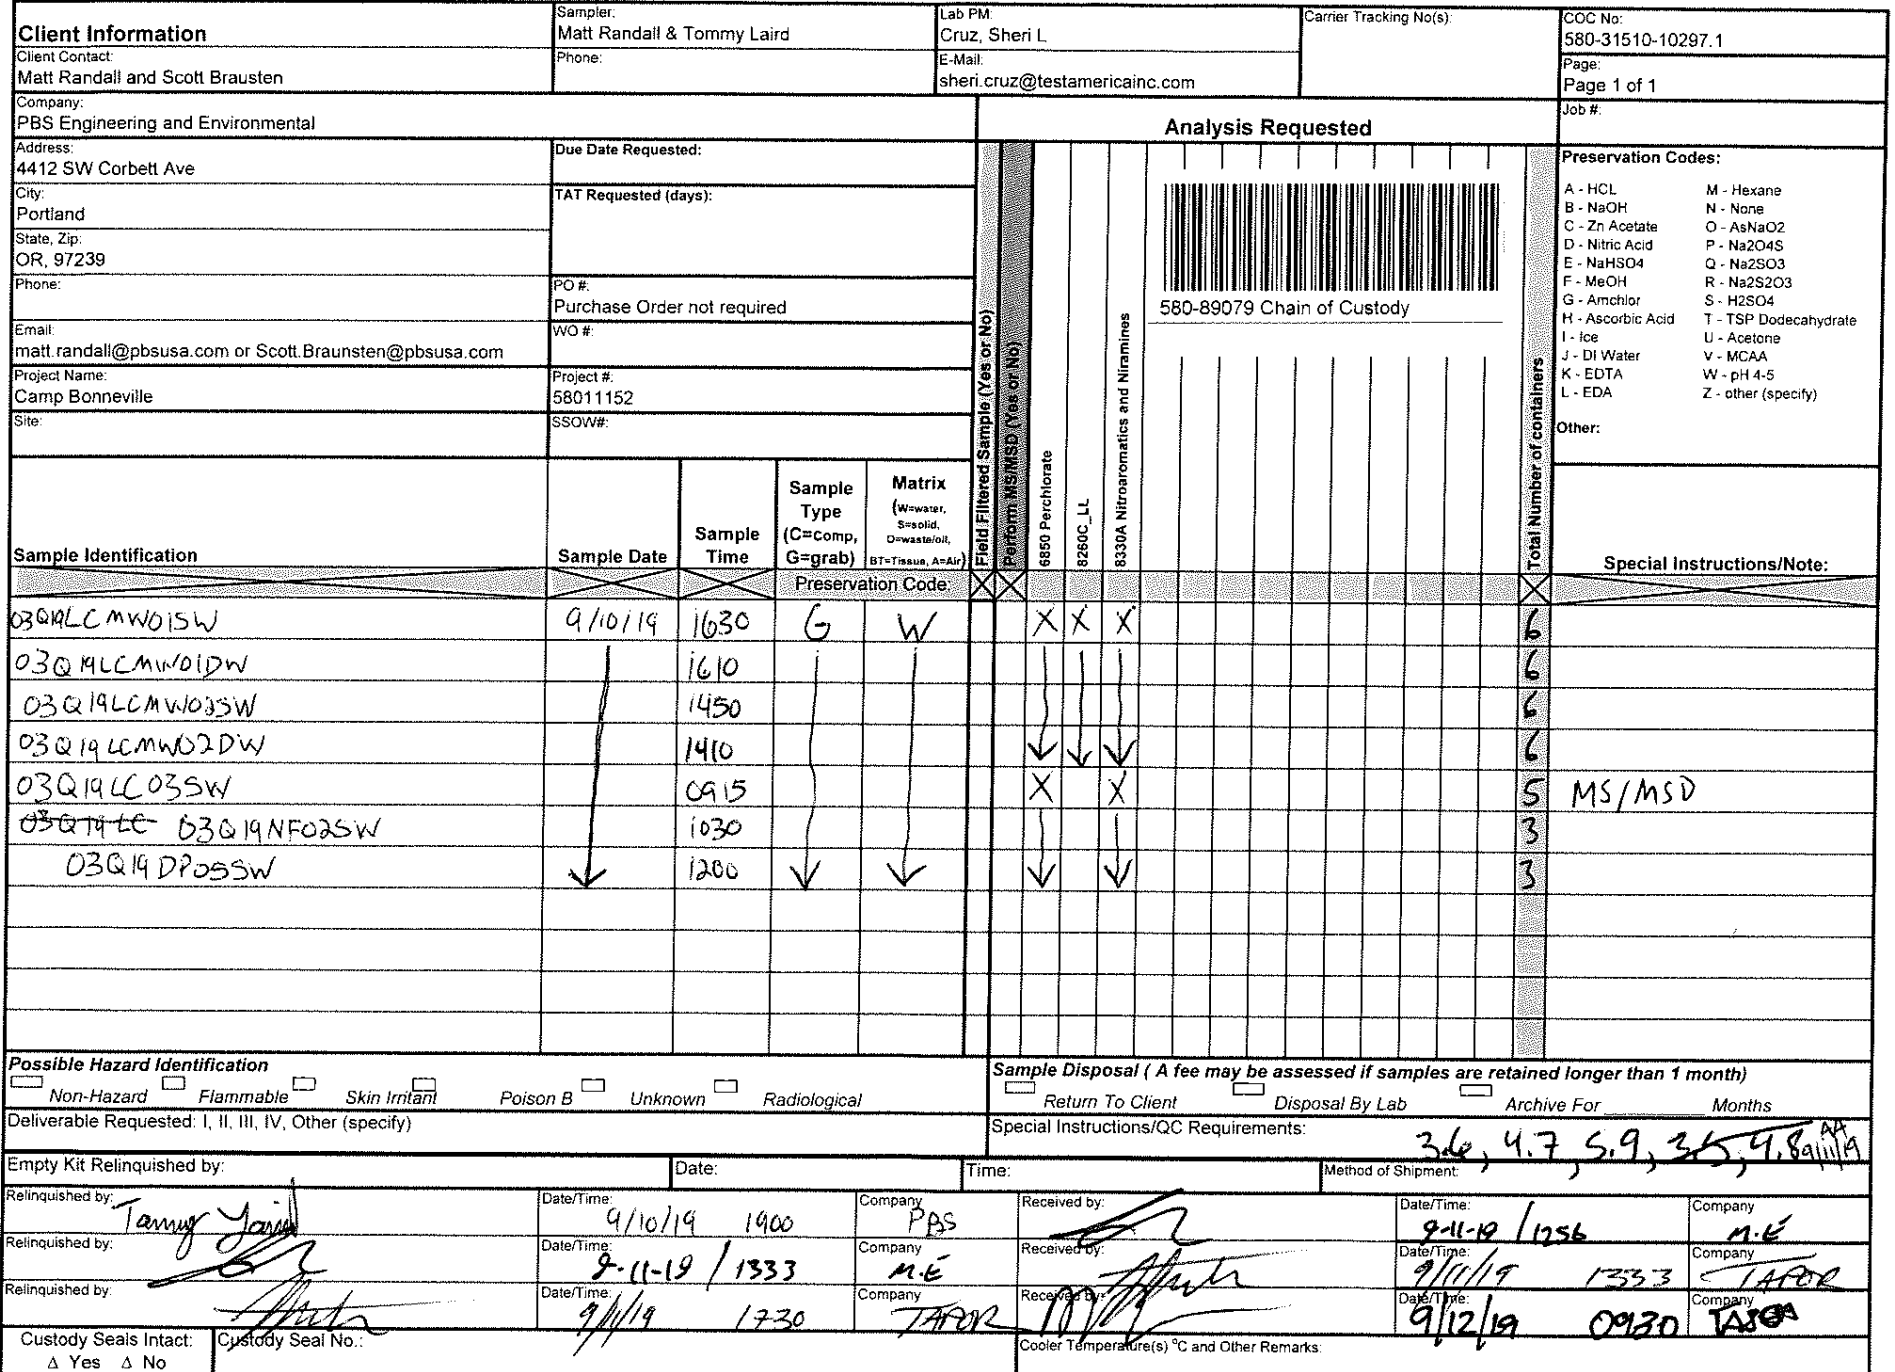 Client Information
Sampler:
Matt Randall & Tommy Laird
Lab PM:
Cruz, Sheri L
Carrier Tracking No(s):
COC No:
580-31510-10297.1
Client Contact:
Matt Randall and Scott Brausten
Phone:
E-Mail:
sheri.cruz@testamericainc.com
Page:
Page 1 of 1
Company:
PBS Engineering and Environmental
Analysis Requested
Job #:
Address:
4412 SW Corbett Ave
City:
Portland
State, Zip:
OR, 97239
Phone:
Email:
matt.randall@pbsusa.com or Scott.Braunsten@pbsusa.com
Project Name:
Camp Bonneville
Site:
Due Date Requested:
TAT Requested (days):
PO #:
Purchase Order not required
WO #:
Project #:
58011152
SSOW#:
580-89079 Chain of Custody
Preservation Codes:
A - HCL M - Hexane
B - NaOH N - None
C - Zn Acetate O - AsNaO2
D - Nitric Acid P - Na2O4S
E - NaHSO4 Q - Na2SO3
F - MeOH R - Na2S2O3
G - Amchlor S - H2SO4
H - Ascorbic Acid T - TSP Dodecahydrate
I - Ice U - Acetone
J - DI Water V - MCAA
K - EDTA W - pH 4-5
L - EDA Z - other (specify)
Other:
Sample Identification
Sample Date
Sample Time
Sample Type (C=comp, G=grab)
Matrix (W=water, S=solid, O=waste/oil, BT=Tissue, A=Air)
Field Filtered Sample (Yes or No)
Perform MS/MSD (Yes or No)
6850 Perchlorate
8260C_LL
8330A Nitroaromatics and Niramines
Total Number of containers
Special Instructions/Note:
Preservation Code:
03Q19LCMW01SW 9/10/19 1630 G W X X X 6
03Q19LCMW01DW 1610 6
03Q19LCMW02SW 1450 6
03Q19LCMW02DW 1410 6
03Q19LC03SW 0915 X X 5 MS/MSD
03Q19LC 03Q19NF02SW 1030 3
03Q19DP05SW 1200 3
Possible Hazard Identification
Non-Hazard Flammable Skin Irritant Poison B Unknown Radiological
Sample Disposal ( A fee may be assessed if samples are retained longer than 1 month)
Return To Client Disposal By Lab Archive For Months
Deliverable Requested: I, II, III, IV, Other (specify)
Special Instructions/QC Requirements:
3.6, 4.7, 5.9,
AA
9/11/19
Empty Kit Relinquished by:
Date:
Time:
Method of Shipment:
Relinquished by:
Date/Time:
9/10/19 1900
Company
PBS
Received by:
Date/Time:
9-11-19 / 1256
Company
M.E
Relinquished by:
Date/Time:
9-11-19 / 1333
Company
M.E
Received by:
Date/Time:
9/11/19 1333
Company
TAPOR
Relinquished by:
Date/Time:
9/11/19 1730
Company
TAPOR
Received by:
Date/Time:
9/12/19 0930
Company
Custody Seals Intact:
Δ Yes Δ No
Custody Seal No.:
Cooler Temperature(s) °C and Other Remarks: